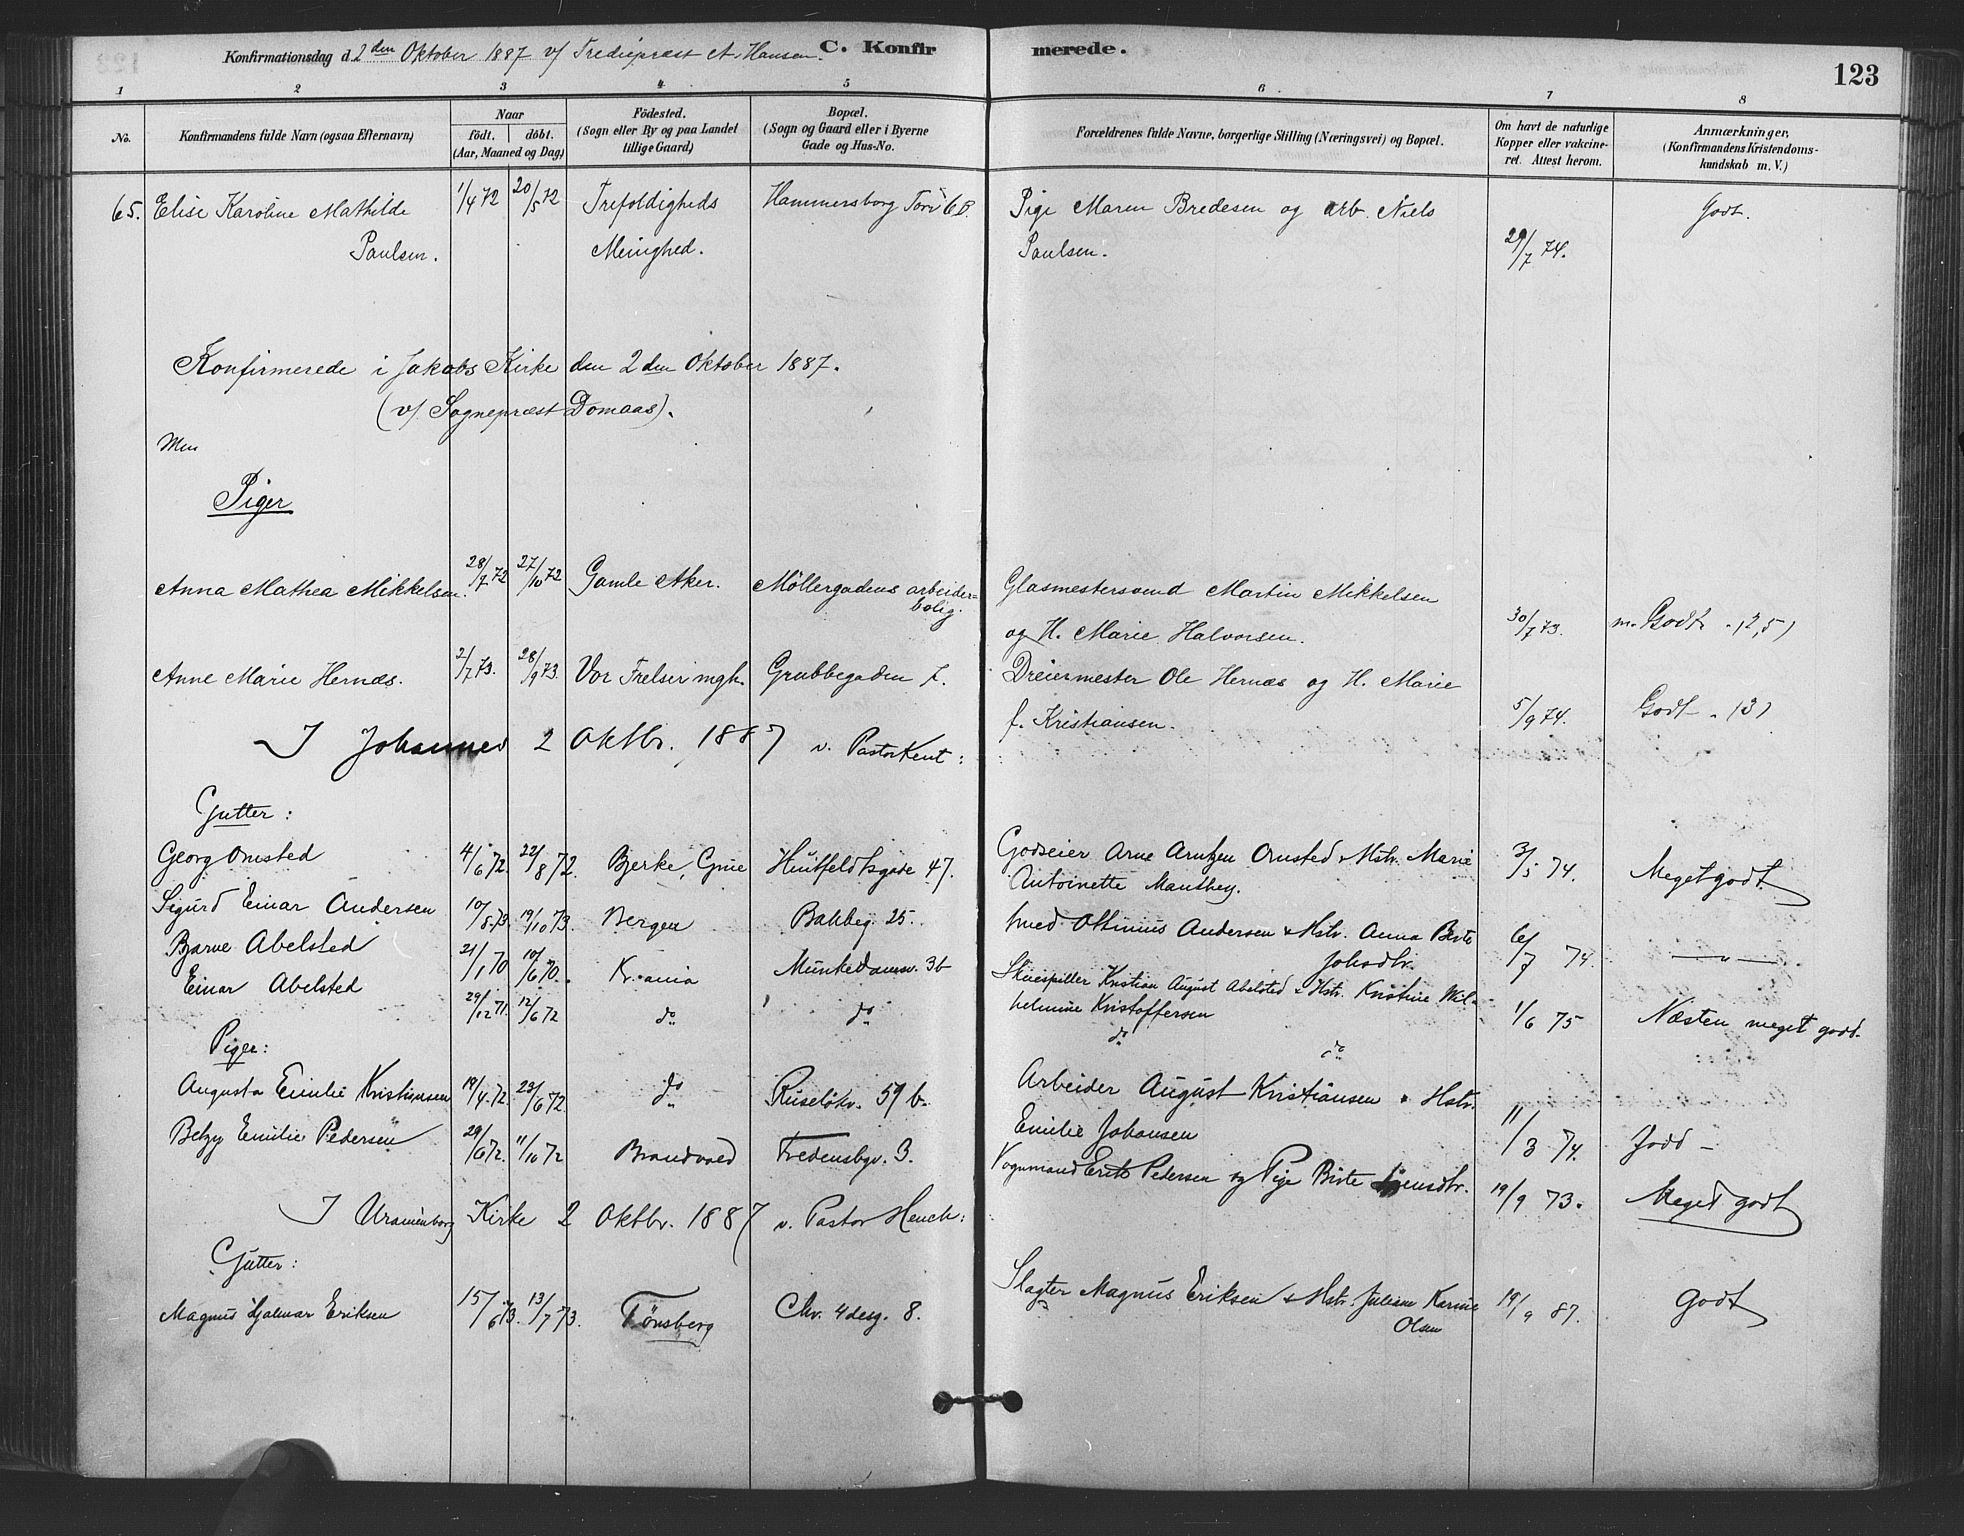 Konfirmationsdag d. 2den Oktober 1887 v/ Tredieprest A. Hansen. C. Konfirmerede. 123
1 2 3 4 5 6 7 8
No. Konfirmandens fulde Navn (ogsaa Efternavn) Naar födt. döbt. (Aar, Maaned og Dag) Födested. (Sogn eller By og paa Landet tillige Gaard) Bopæl. (Sogn og Gaard eller i Byerne Gade og Hus-No. Forældrenes fulde Navne, borgerlige Stilling (Næringsvei) og Bopæl. Om havt de naturlige Kopper eller vakcineret. Attest herom. Anmærkninger. (Konfirmandens Kristendomskundskab m. V.)
65. Elise Karoline Mathilde 1/4 72 20/5 72 Trefoldigheds Hammersborg Torv 6 B. Pige Maren Bredesen og arb. Niels Godt.
Paulsen. Menighed. Paulsen. 29/7 74.
Konfirmerede i Jakobs Kirke den 2den Oktober 1887.
(v/ Sognepræst Domaas).
Men
Piger
Anna Mathea Mikkelsen. 28/7 72 27/10 72 Gamle Aker. Möllergadens arbeider- Glasmestersvend Martin Mikkelsen
bolig. og H. Marie Halvorsen. 30/7 73. m. Godt. (2,5)
Anne Marie Hernæs. 2/7 73. 28/9 73. Vor Frelser mgh. Grubbegaden 7. Dreiermester Ole Hernæs og H. Marie
f. Kristiansen. 5/9 74. Godt. (3)
I Johannes 2 Oktbr. 1887 v. Pastor Kent:
Gutter:
Georg Omsted 4/6 72. 22/8 72. Bjerke, Grue Huitfeldtsgade 47. Godseier Arne Arntzen Omsted & Hstr. Marie 3/5 74. Meget godt
Antoinette Manthey.
Sigurd Einar Andersen 10/8 73. 19/10 73. Bergen Bakkeg. 25. Smed Ottinius Andersen & Hstr. Anna Berte 6/7 74. — " —
Johsdtr.
Bjarne Abelsted 21/1 70 10/6 70. Kr.ania Munkedamsv. 3b Skuespiller Kristian August Abelsted & Hstr. Kristine Wil-
helmine Kristoffersen 1/6 75 Næsten meget godt.
Einar Abelsted 29/12 71. 12/6 72 do do do do
Piger:
Augusta Emilie Kristiansen 19/4 72. 23/6 72. do Ruseløkv. 59 b. Arbeider August Kristiansen & Hstr.
Emilie Johansen 11/3 74. Godt —
Betzy Emilie Pedersen 29/6 72. 11/10 72 Brandvold Fredensbgv. 3. Vognmand Erik Pedersen og Pige Birte Jensdtr. 19/9 73. Meget godt
I Uranienborg Kirke 2 Oktbr. 1887 v. Pastor Heuch:
Gutter:
Magnus Hjalmar Eriksen 15/6 73. 13/7 73. Tönsberg Chr. 4 desg. 8. Slagter Magnus Eriksen & Hstr. Juliane Karine 19/9 87. Godt
Olsen